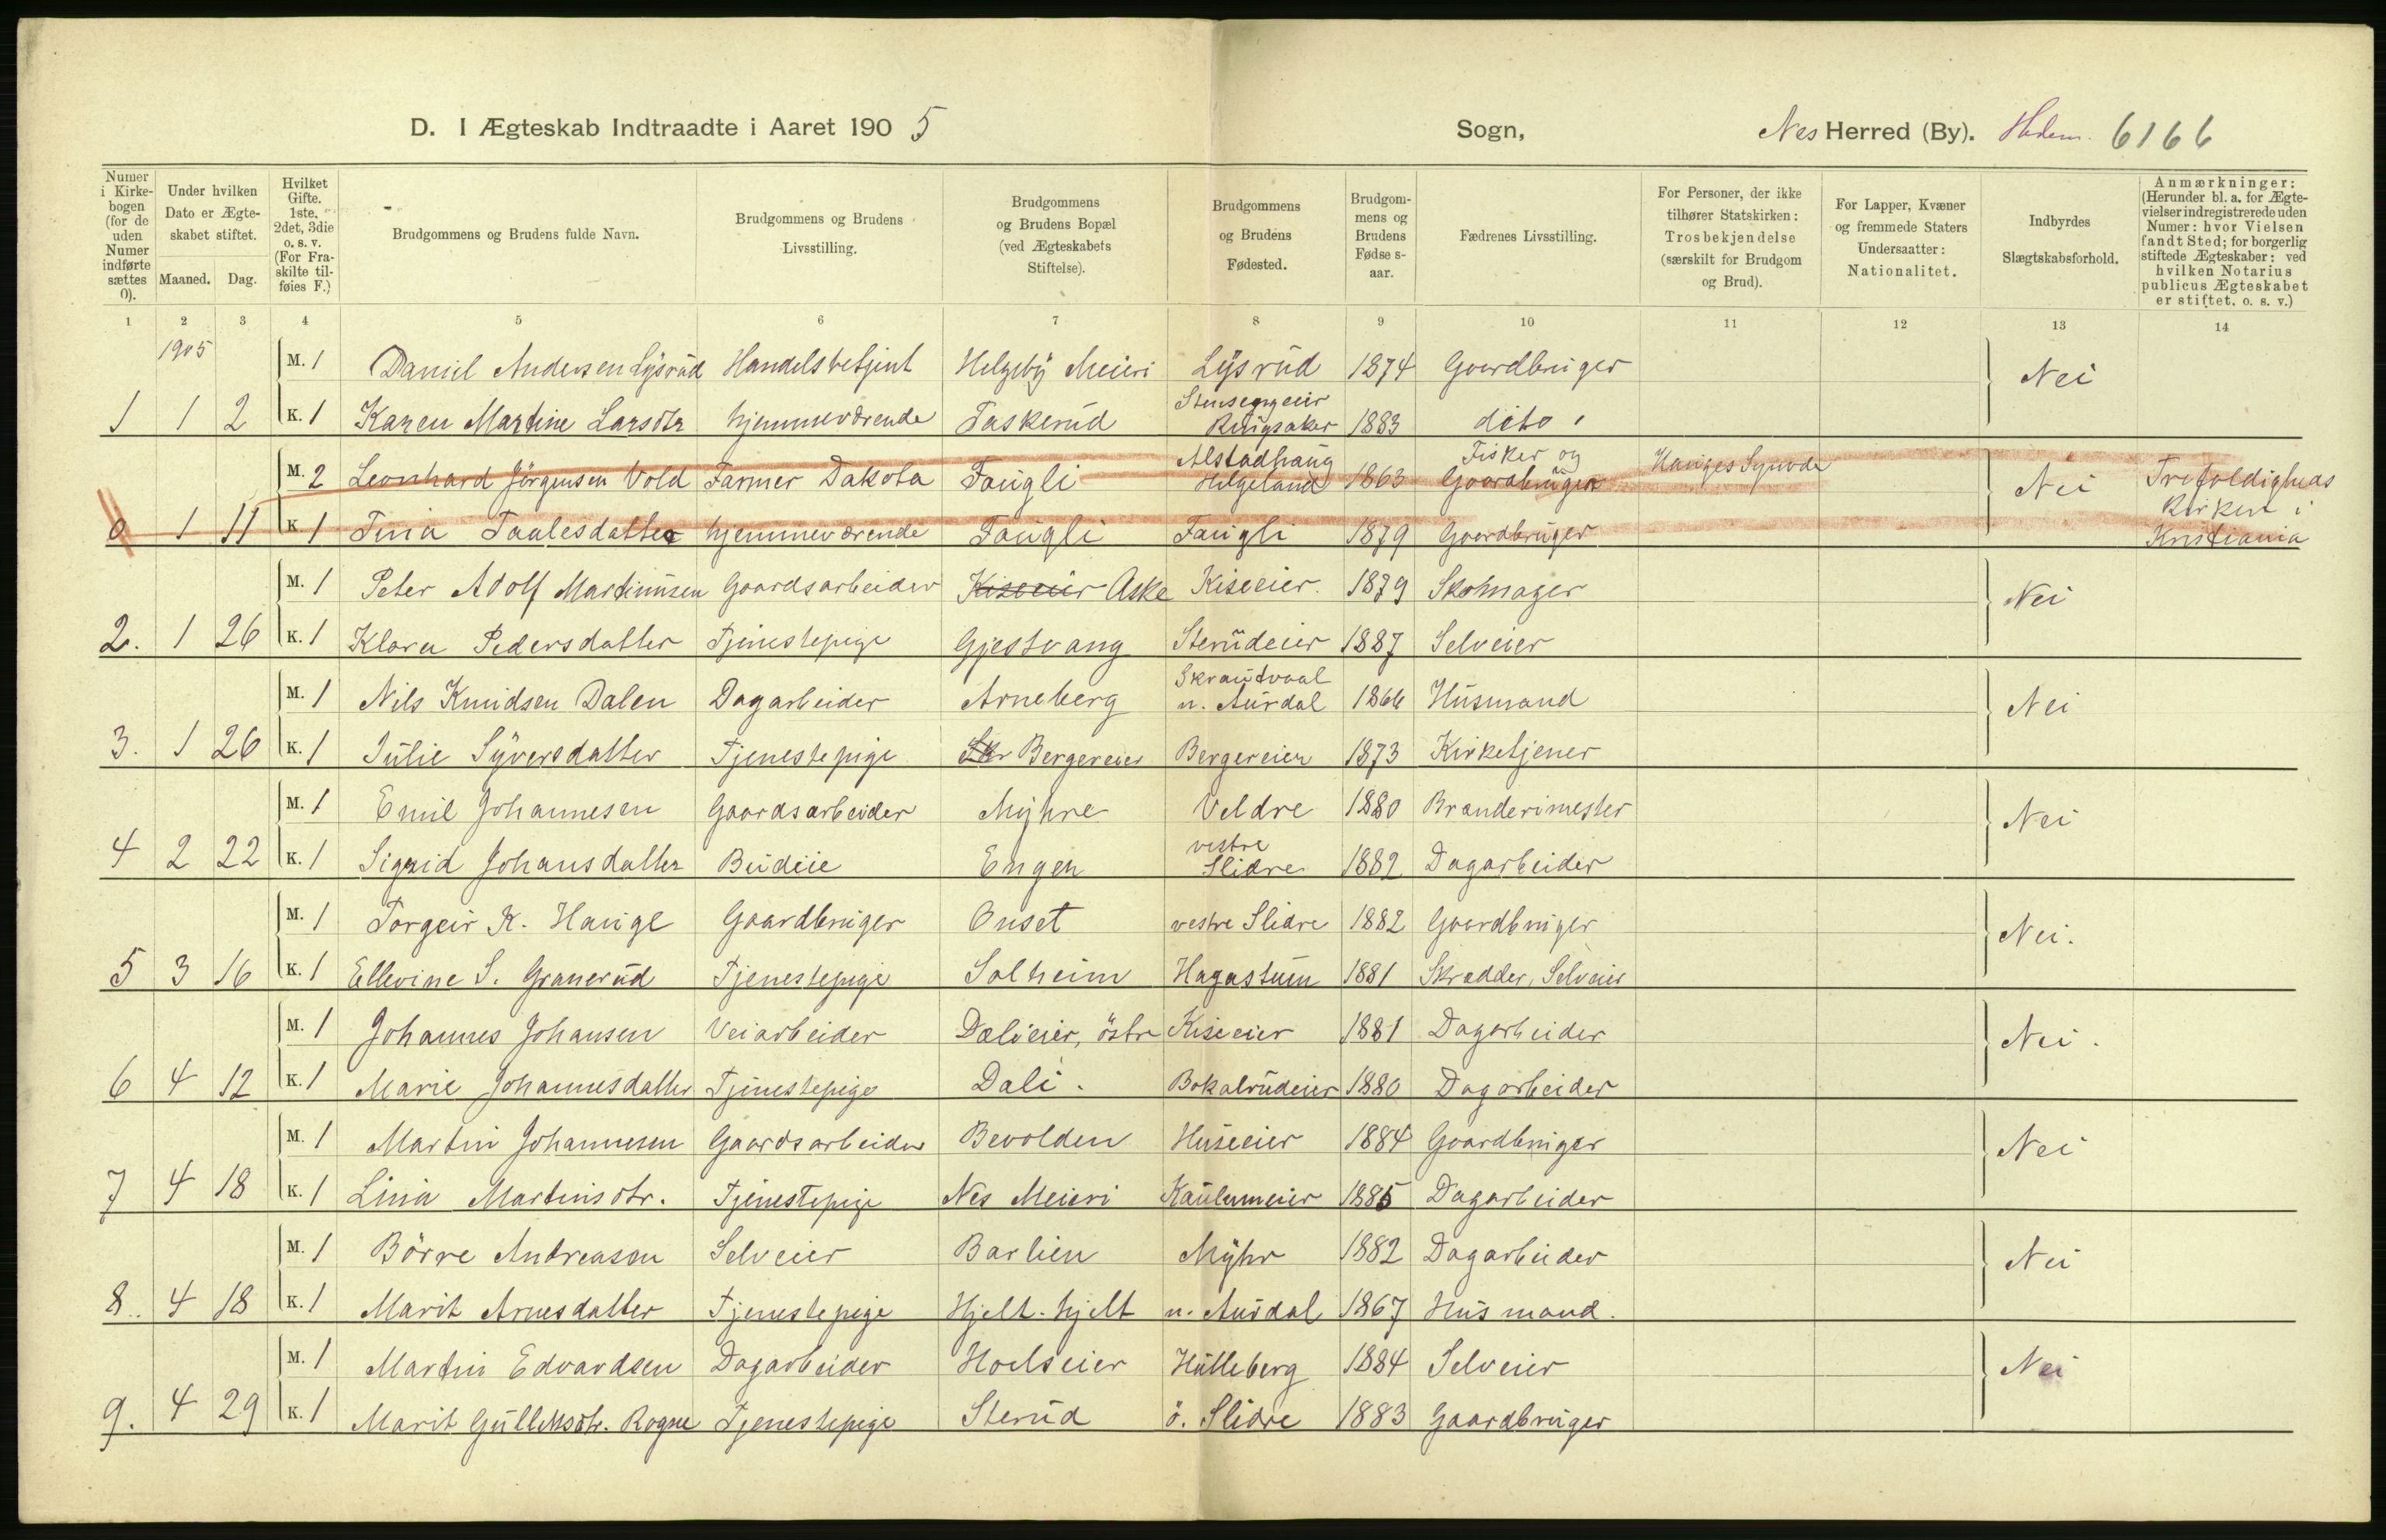 D. I Ægteskab Indtraadte i Aaret 1905 Sogn, Nes Herred (By). Hedem. 6166
Numer i Kirke-bogen (for de uden Numer indførte sættes 0).
Under hvilken Dato er Ægte-skabet stiftet.
Maaned. Dag.
Hvilket Gifte. 1ste, 2det, 3die o. s. v. (For Fra-skilte til-føies F.)
Brudgommens og Brudens fulde Navn.
Brudgommens og Brudens Livsstilling.
Brudgommens og Brudens Bopæl (ved Ægteskabets Stiftelse).
Brudgommens og Brudens Fødested.
Brudgom-mens og Brudens Fødse s-aar.
Fædrenes Livsstilling.
For Personer, der ikke tilhører Statskirken: Trosbekjendelse (særskilt for Brudgom og Brud).
For Lapper, Kvæner og fremmede Staters Undersaatter: Nationalitet.
Indbyrdes Slægtskabsforhold.
Anmærkninger: (Herunder bl. a. for Ægte-vielser indregistrerede uden Numer: hvor Vielsen fandt Sted; for borgerlig stiftede Ægteskaber: ved hvilken Notarius publicus Ægteskabet er stiftet, o. s. v.)
1 2 3 4 5 6 7 8 9 10 11 12 13 14
1905
M. 1 Daniel Andersen Lysrud Handelsbetjent Helgeby Meieri Lysrud 1874 Gaardbruger Nei
1 1 2 K. 1 Karen Martine Larsdtr hjemmeværende Taskerud Stensengeier Ringsaker 1883 dito
M. 2 Leonhard Jörgensen Vold Farmer Dakota Faugli Alstadhaug Helgeland 1863 Fisker og Gaardbruger Hauges Synode Nei Trefoldigheds
0 1 11 K 1 Tina Taalesdatter hjemmeværende Faugli Faugli 1879 Gaardbruger Kirken i Kristiania
M. 1 Peter Adolf Martinusen Gaardsarbeider Kiseeier Aske Kiseeier 1879 Skomager Nei
2. 1 26 K. 1 Klara Pedersdatter Tjenestepige Gjestvang Sterudeier 1887 Selveier
M. 1 Nils Knudsen Dalen Dagarbeider Arneberg Skrautvaal n. Aurdal 1866 Husmand Nei
3. 1 26 K. 1 Julie Syversdatter Tjenestepige Bergereier Bergereier 1873 Kirketjener
M. 1 Emil Johannesen Gaardsarbeider Myhre Veldre 1880 Brænderimester Nei
4 2 22 K. 1 Sigrid Johansdatter Budeie Engen vestre Slidre 1882 Dagarbeider
M. 1 Torgeir K. Hauge Gaardbruger Onset vestre Slidre 1882 Gaardbruger Nei.
5 3 16 K. 1 Ellevine S. Granerud Tjenestepige Solheim Hagastuen 1881 Skrædder, Selveier
M. 1 Johannes Johansen Veiarbeider Dælieier, östre Kiseeier 1881 Dagarbeider Nei.
6 4 12 K. 1 Marie Johannesdatter Tjenestepige Dæli. Bokalrudeier 1880 Dagarbeider
M. 1 Martin Johannesen Gaardsarbeider Bevolden Huseeier 1884 Gaardbruger Nei
7 4 18 K. 1 Lina Martinsdtr. Tjenestepige Nes Meieri Kaulumeier 1885 Dagarbeider
M. 1 Börre Andreasen Selveier Barlien Myhr 1882 Dagarbeider Nei
8. 4 18 K. 1 Marit Arnesdatter Tjenestepige Hjelt-hjelt n. Aurdal 1867 Husmand.
M. 1 Martin Edvardsen Dagarbeider Hoelseier Hulleberg 1884 Selveier Nei
9. 4 29 K. 1 Marit Gulleksdtr. Rogne Tjenestepige Sterud ö. Slidre 1883 Gaardbruger